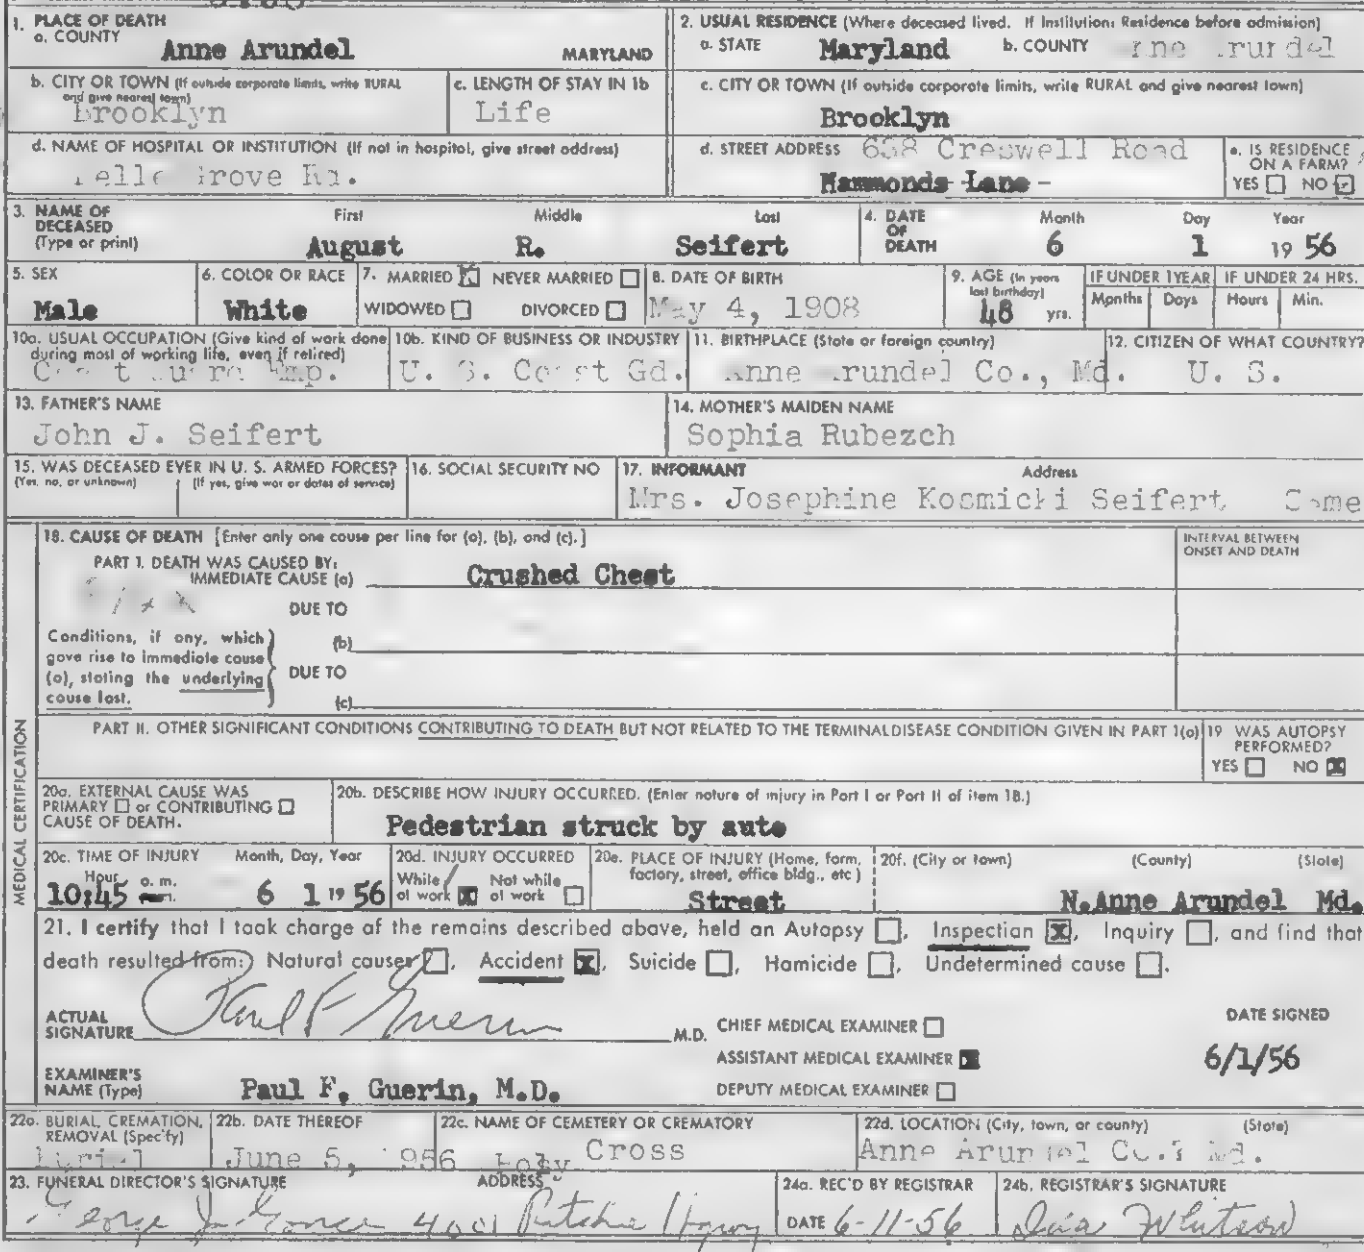 1. PLACE OF DEATH
a. COUNTY
Anne Arundel MARYLAND
2. USUAL RESIDENCE (Where deceased lived. If Institution: Residence before admission)
a. STATE Maryland b. COUNTY Anne Arundel
b. CITY OR TOWN (If outside corporate limits, write RURAL and give nearest town)
Brooklyn
c. LENGTH OF STAY IN 1b
Life
c. CITY OR TOWN (If outside corporate limits, write RURAL and give nearest town)
Brooklyn
d. NAME OF HOSPITAL OR INSTITUTION (If not in hospital, give street address)
Belle Grove Rd.
d. STREET ADDRESS 638 Creswell Road
Hammonds Lane -
e. IS RESIDENCE ON A FARM?
YES NO
3. NAME OF DECEASED (Type or print)
First Middle Last
August R. Seifert
4. DATE OF DEATH
Month Day Year
6 1 19 56
5. SEX
Male
6. COLOR OR RACE
White
7. MARRIED NEVER MARRIED
WIDOWED DIVORCED
8. DATE OF BIRTH
May 4, 1908
9. AGE (In years last birthday)
48 yrs.
IF UNDER 1 YEAR
Months Days
IF UNDER 24 HRS.
Hours Min.
10a. USUAL OCCUPATION (Give kind of work done during most of working life, even if retired)
Coast Guard Emp.
10b. KIND OF BUSINESS OR INDUSTRY
U. S. Coast Gd.
11. BIRTHPLACE (State or foreign country)
Anne Arundel Co., Md.
12. CITIZEN OF WHAT COUNTRY?
U. S.
13. FATHER'S NAME
John J. Seifert
14. MOTHER'S MAIDEN NAME
Sophia Rubezch
15. WAS DECEASED EVER IN U. S. ARMED FORCES?
(Yes, no, or unknown) (If yes, give war or dates of service)
16. SOCIAL SECURITY NO
17. INFORMANT Address
Mrs. Josephine Kosmicki Seifert Same
MEDICAL CERTIFICATION
18. CAUSE OF DEATH [Enter only one cause per line for (a), (b), and (c).]
INTERVAL BETWEEN ONSET AND DEATH
PART I. DEATH WAS CAUSED BY:
IMMEDIATE CAUSE (a) Crushed Chest
DUE TO
Conditions, if any, which gave rise to immediate cause (a), stating the underlying cause last.
(b)
DUE TO
(c)
PART II. OTHER SIGNIFICANT CONDITIONS CONTRIBUTING TO DEATH BUT NOT RELATED TO THE TERMINAL DISEASE CONDITION GIVEN IN PART 1(a)
19 WAS AUTOPSY PERFORMED?
YES NO
20a. EXTERNAL CAUSE WAS PRIMARY or CONTRIBUTING CAUSE OF DEATH.
20b. DESCRIBE HOW INJURY OCCURRED. (Enter nature of injury in Part I or Part II of item 18.)
Pedestrian struck by auto
20c. TIME OF INJURY Month, Day, Year
Hour a. m.
10:45 p.m. 6 1 19 56
20d. INJURY OCCURRED
While at work Not while at work
20e. PLACE OF INJURY (Home, farm, factory, street, office bldg., etc)
Street
20f. (City or town) (County) (State)
N.Anne Arundel Md.
21. I certify that I took charge of the remains described above, held an Autopsy , Inspection , Inquiry , and find that
death resulted from: Natural causes , Accident , Suicide , Homicide , Undetermined cause .
ACTUAL SIGNATURE Paul F Guerin M.D.
CHIEF MEDICAL EXAMINER
ASSISTANT MEDICAL EXAMINER
DEPUTY MEDICAL EXAMINER
DATE SIGNED
6/1/56
EXAMINER'S NAME (Type) Paul F. Guerin, M.D.
22a. BURIAL, CREMATION, REMOVAL (Specify)
Burial
22b. DATE THEREOF
June 5, 1956
22c. NAME OF CEMETERY OR CREMATORY
Holy Cross
22d. LOCATION (City, town, or county) (State)
Anne Arundel Co. Md.
23. FUNERAL DIRECTOR'S SIGNATURE ADDRESS
George J. Gonce 4001 Ritchie Hgwy
24a. REC'D BY REGISTRAR
DATE 6-11-56
24b. REGISTRAR'S SIGNATURE
Whitson